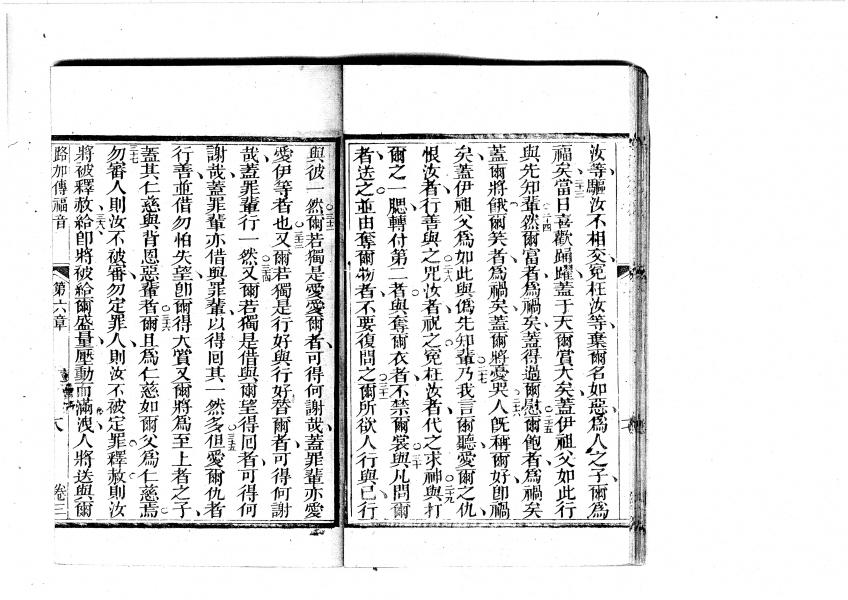 汝等驅汝不相交寃枉汝等棄爾名如惡爲人之子爾爲
福矣二十三當日喜歡踊躍蓋于天爾賞大矣蓋伊祖父如此行
與先知輩二十四然爾富者爲禍矣蓋得過爾慰二十五爾飽者爲禍矣
蓋爾將餓爾笑者爲禍矣蓋爾將愛哭二十六人旣稱爾好卽禍
矣蓋伊祖父爲如此與僞先知輩二十七乃我言爾聽愛爾之仇
恨汝者行善與之二十八咒汝者祝之寃枉汝者代之求神二十九與打
爾之一腮轉付第二者與奪爾衣者不禁爾裳三十與凡問爾
者送之並由奪爾物者不要復問之三十一爾所欲人行與己行
與彼一然三十二爾若獨是愛愛爾者可得何謝哉蓋罪輩亦愛
愛伊等者也三十三又爾若獨是行好與行好替爾者可得何謝
哉蓋罪輩行一然三十四又爾若獨是借與爾望得囘者可得何
謝哉蓋罪輩亦借與罪輩以得囘其一然多三十五但愛爾仇者
行善並借勿怕失望卽爾得大賞又爾將爲至上者之子
蓋其仁慈與背恩惡輩者三十六爾且爲仁慈如爾父爲仁慈焉
三十七勿審人則汝不被審勿定罪人則汝不被定罪釋赦則汝
將被釋赦三十八給卽將被給爾盛量壓動而滿洩人將送與爾
路加傳福音 第六章 八 卷三